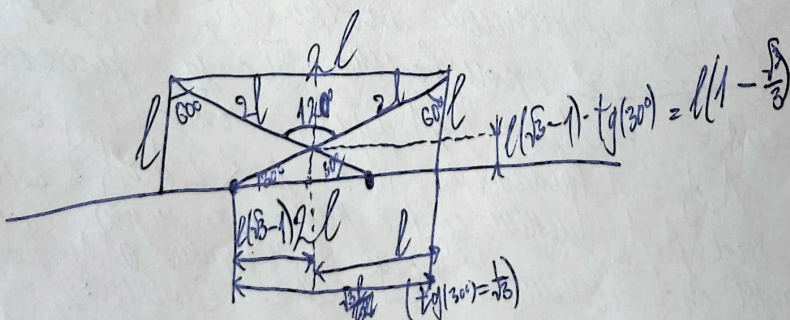 2l
l 60° 2l 120° 2l 60° l
l(√3-1)·tg(30°) = l(1 - √3/3)
30° 30°
l(√3-1) 2l l
(tg(30°)=1/√3)